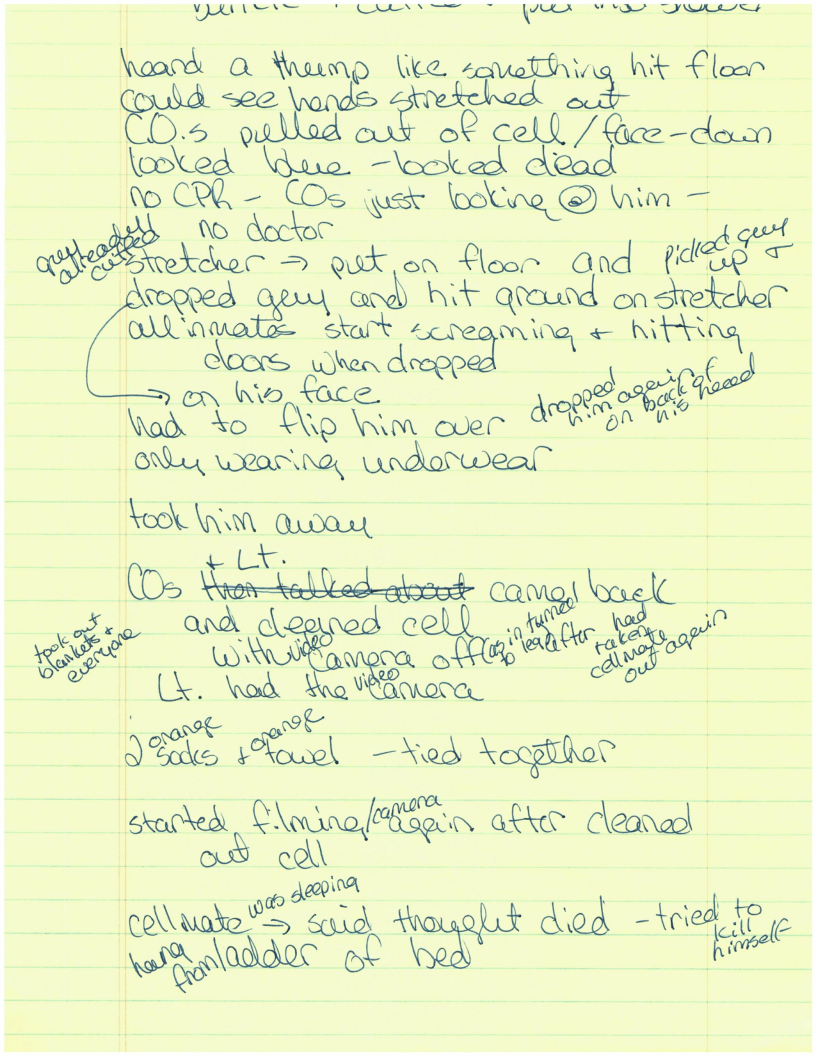 heard a thump like something hit floor
could see hands stretched out
C.O.s pulled out of cell / face-down
looked blue - looked dead
no CPR - COs just looking @ him -
no doctor
guy already cuffed
stretcher → put on floor and picked guy up +
dropped guy and hit ground on stretcher
all inmates start screaming + hitting
doors when dropped
→ on his face
had to flip him over dropped him again on back of his head
only wearing underwear
took him away
+ Lt.
COs then talked about came back
and cleaned cell
took out blankets + everyone
with video camera off (as in turned to lead after had taken cellmate out again
Lt. had the video camera
2 orange socks + orange towel - tied together
started filming / camera again after cleaned
out cell
cellmate was sleeping → said thought died - tried to kill himself
hang from ladder of bed